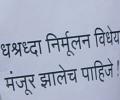 धश्रध्दा निर्मूलन विधेय
मंजूर झालेच पाहिजे !